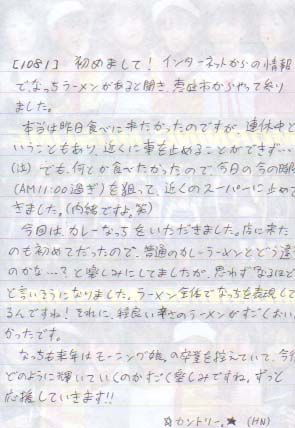 [1051] 初めまして！インターネットからの情報
で、なっちラーメンがあると聞き、恵庭市からやって来り
ました。
本当は昨日食べに来たかったのですが、連休中と
いうこともあり、近くに車を止めることができず…
(泣) でも、何とか食べたかったので、今日の今の時間
(AM11:00過ぎ)を狙って、近くのスーパーに止めて
きました。(内緒ですよ、笑)
今回は、カレーなっちをいただきました。店に来た
のも初めてだったので、普通のカレーラーメンとどう違う
のかな…？と楽しみにしてましたが、思わず なるほど
と言いそうになりました。ラーメン全体でなっちを表現して
るんですね！それに、程良い辛さのラーメンがすごくおいし
かったです。
なっちも来年はモーニング娘。の卒業を控えていて、今後
どのように輝いていくのかすごく楽しみですね。ずっと
応援していきます!!
☆カントリー。★ (HN)